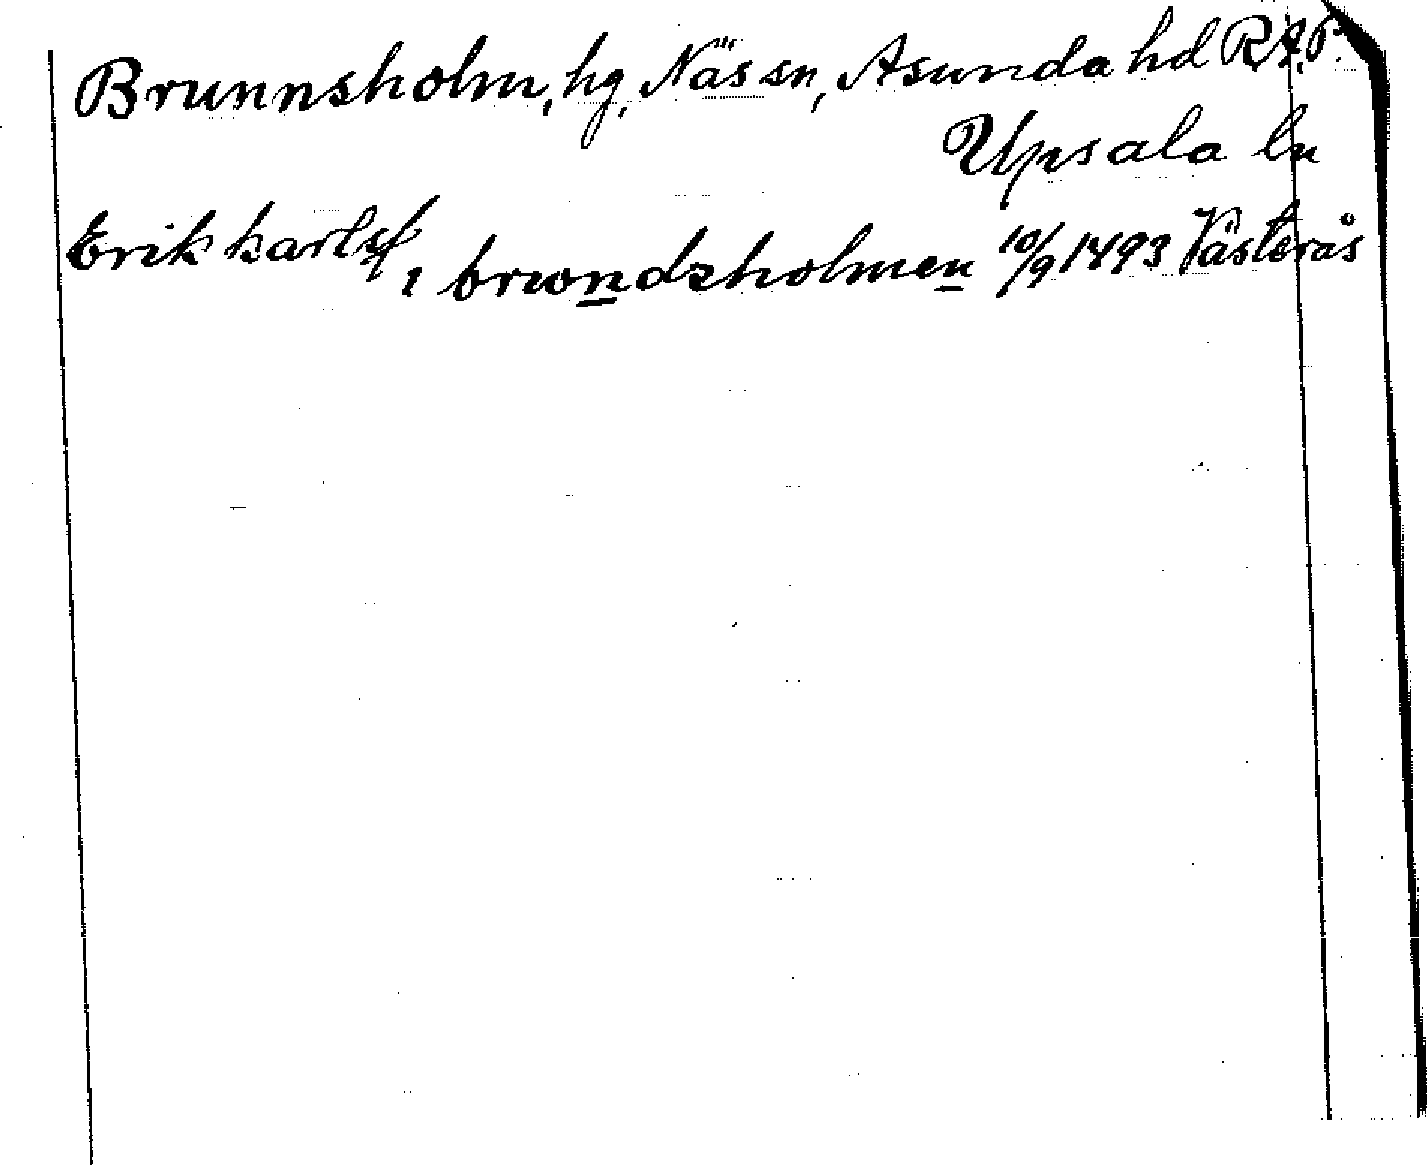 Brunnsholm, hg, Näs sn, Åsunda hd RAP.
Upsala ln
Erik karlsſ, i brwndzholmen 10/9 1493 Västerås